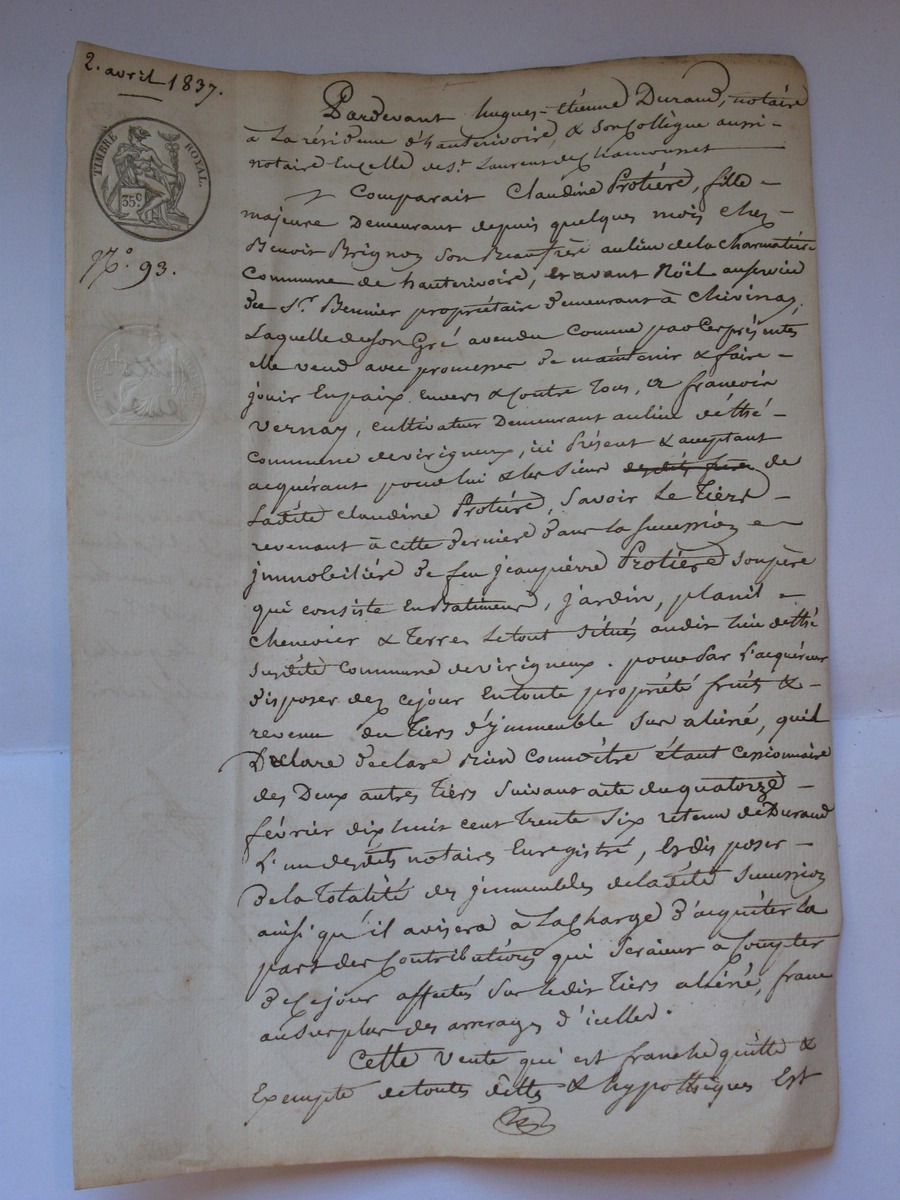 2. avril 1837.
TIMBRE ROYAL.
35 c
N.° 93.
Pardevant hugues-étienne Durand, notaire
à La résidence d'hauterivoire, & son Collègue aussi
notaire En celle de St. Laurent de Chamousset
Comparait Claudine Protière, fille
majeure Demeurant depuis quelques mois chez
Benoit Brignon son Beaufrère au lieu de la Charmatière
Commune de hauterivoire, et avant Noël au service
de Sr. Bernier propriétaire Demeurant à Chivinay,
Laquelle de son Gré a vendu Comme par Ces présentes
elle vend avec promesses de maintenir & faire
jouir En paix Envers & Contre Tous, à francois
Vernay, cultivateur Demeurant au lieu d'éthé
Commune de virigneux, ici Présent & acceptant
acquérant pour lui & les siens de
Ladite Claudine Protière, Savoir Le Tiers
revenant à cette Dernière Dans la Succession
jmmobiliére De feu jeanpierre Protière Son père
qui consiste En Batiment, jardin, planil
Chenevier & Terres Le tout situés audit lieu d'éthé
Susdite Commune de virigneux. pour Par L'acquéreur
Disposer dez ce jour En toute propriété fruits &
revenu du Tiers d'jmmeuble Sus aliéné, qu'il
Déclare Déclare Bien Connoître étant Cessionnaire
des Deux autres Tiers Suivant acte du quatorze
février dix huit cent Trente Six retenu de Durand
L'un desdits notaires Enregistré, Et disposer
De la Totalité des jmmeubles de ladite Succession
ainsi qu'il avisera à La Charge d'acquiter La
part des Contributions qui Seraient a Compter
De Ce jour affectés Sur ledit Tiers aliéné, franc
au Surplus des arrerages d'icelles.
Cette Vente qui est franche quitte &
Exempte de toutes dettes & hypothèques Est